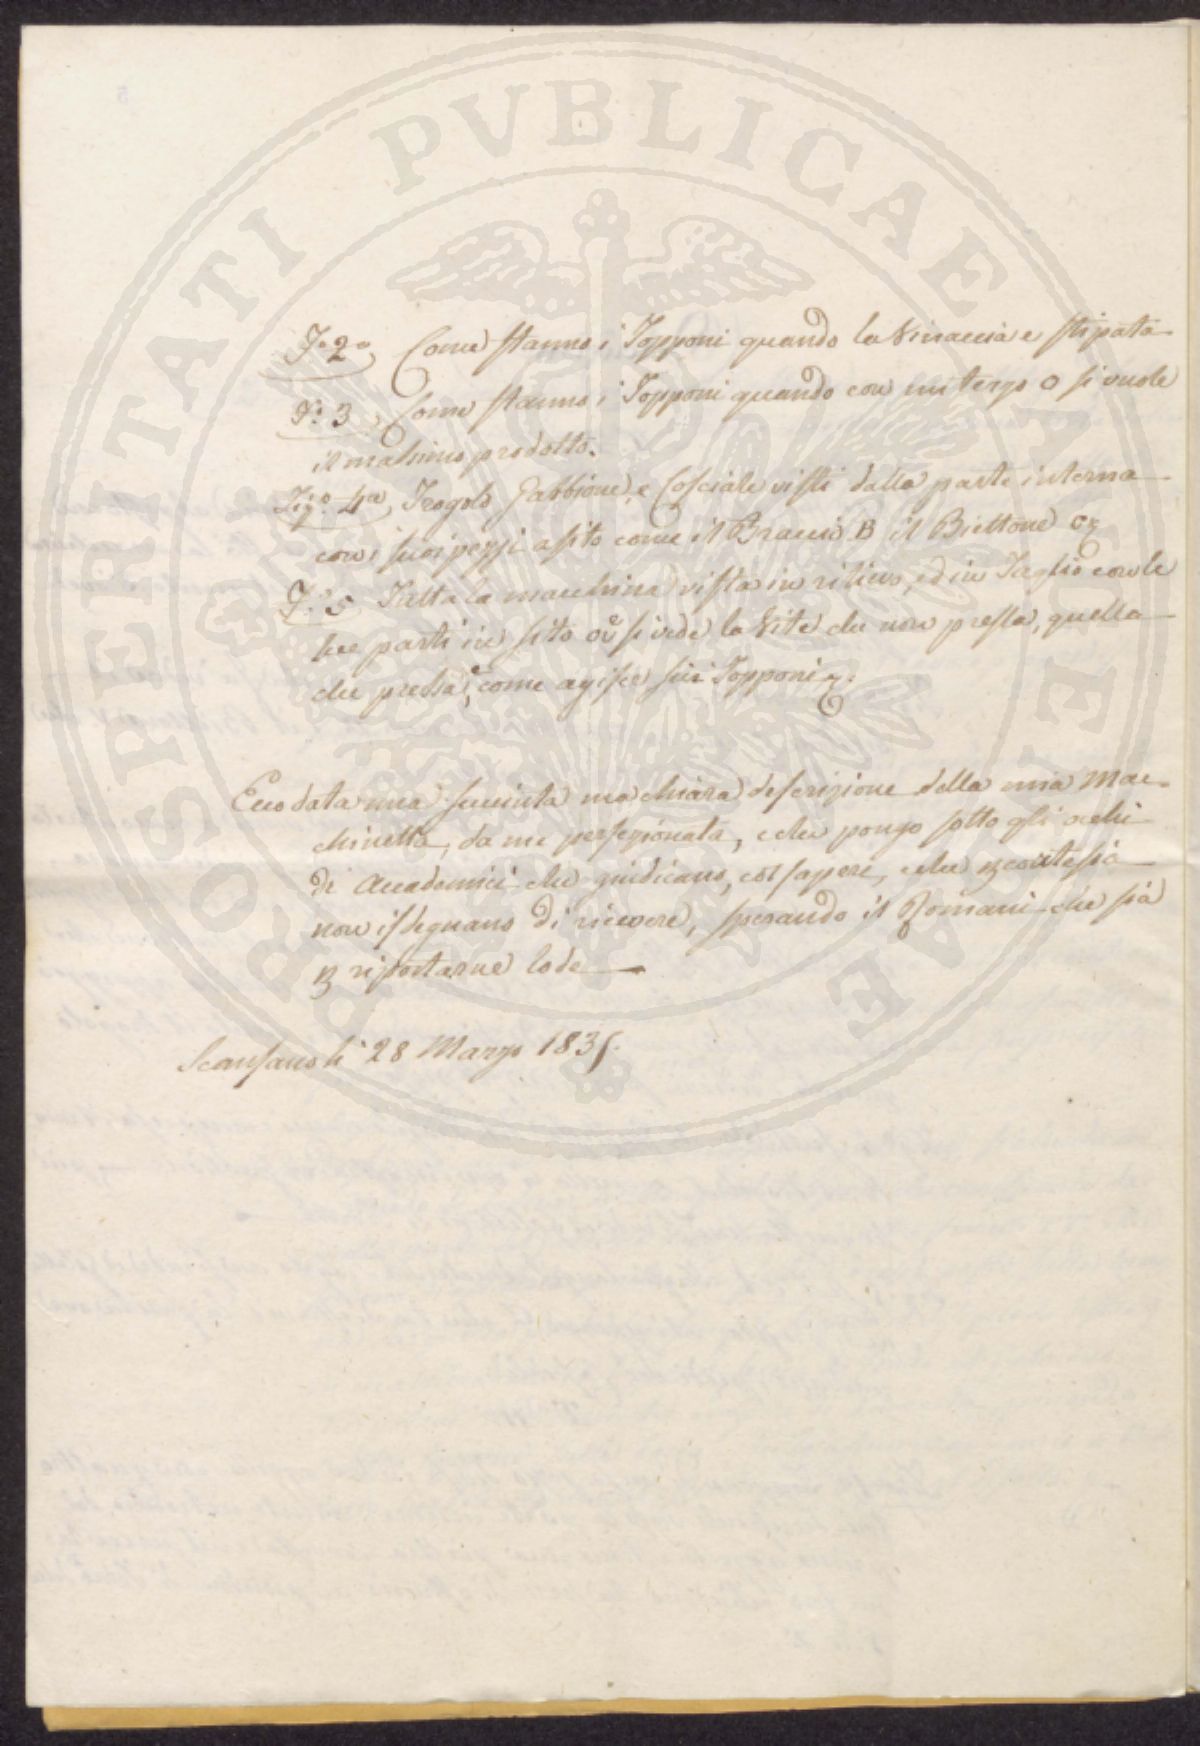 F.a 2.a Come stanno i Topponi quando la Vinaccia e stipata
F.a 3 Come stanno i Topponi quando con un terzo o si vuole
il massimo prodotto.
Fig.a 4.a Trogolo Gabbione, e Cosciale visti dalla parte interna
con i suoi pezzi a sito come il Braccio B il Biettone
F.a 5 Tutta la macchina vista in rilievo, ed in Taglio con le
sue parti in sito ove si vede la Vite che non pressa, quella
che pressa, e come agisce sui Topponi
Ecco data una succinta ma chiara descrizione della mia Mac-
chinetta, da me perfezionata, e che pongo sotto gli occhi
di Accademici che giudicano, col sapere, e che p cortesia
non isdegnano di ricevere, sperando il Romani che sia
p riportarne lode
Scansano li 28 Marzo 1835.
PROSPERITATI PVBLICAE AVGENDAE
5